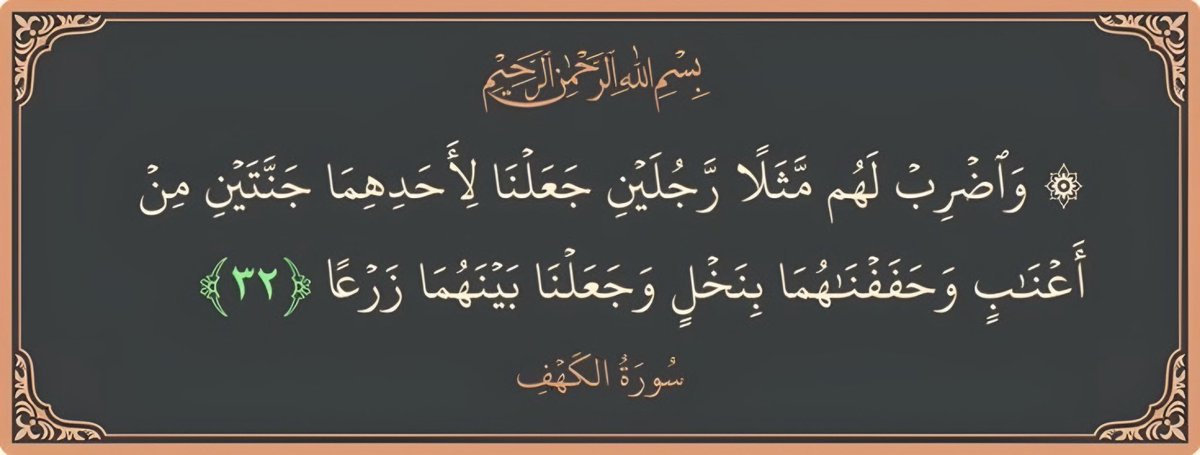 بِسْمِ اللهِ الرَّحْمٰنِ الرَّحِيْمِ
۞ وَٱضْرِبْ لَهُم مَّثَلًا رَّجُلَيْنِ جَعَلْنَا لِأَحَدِهِمَا جَنَّتَيْنِ مِنْ
أَعْنَـٰبٍ وَحَفَفْنَـٰهُمَا بِنَخْلٍ وَجَعَلْنَا بَيْنَهُمَا زَرْعًا ﴿٣٢﴾
سُورَةُ الكَهْفِ